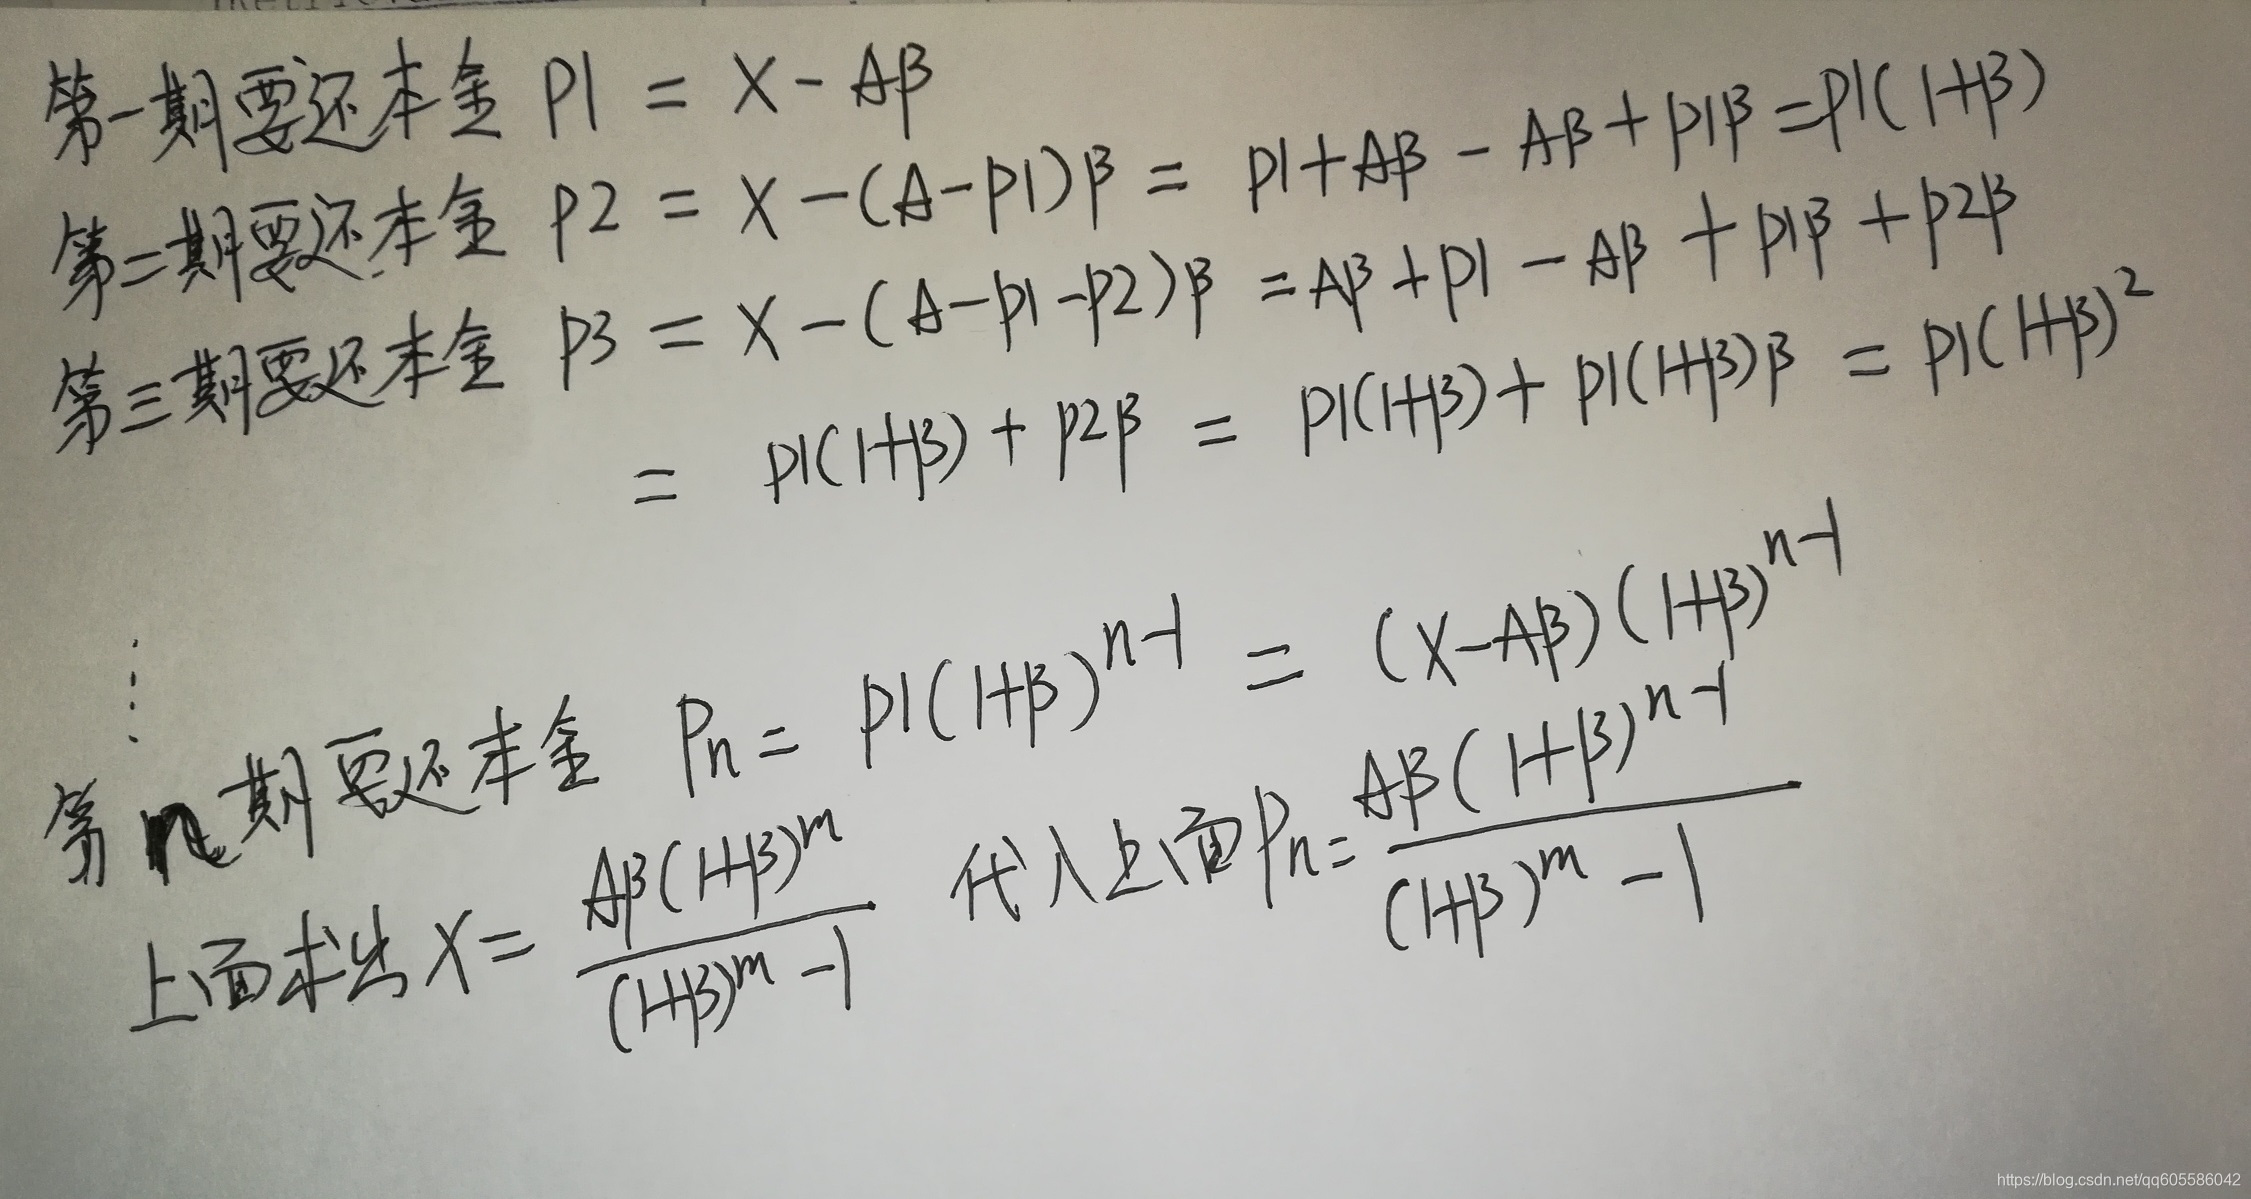 第一期要还本金 P1 = X - Aβ
第二期要还本金 P2 = X - (A-P1)β = P1 + Aβ - Aβ + P1β = P1(1+β)
第三期要还本金 P3 = X - (A-P1-P2)β = Aβ + P1 - Aβ + P1β + P2β
= P1(1+β) + P2β = P1(1+β) + P1(1+β)β = P1(1+β)²
⋮
第n期要还本金 Pn = P1(1+β)^(n-1) = (X-Aβ)(1+β)^(n-1)
上面求出 X = Aβ(1+β)^m / ((1+β)^m - 1) 代入上面 Pn = Aβ(1+β)^(n-1) / ((1+β)^m - 1)
https://blog.csdn.net/qq605586042